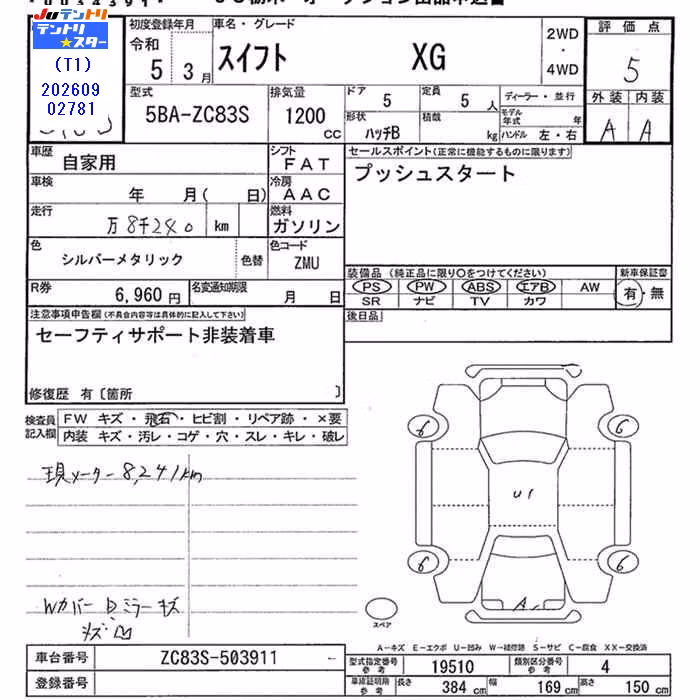 JUテントリ
テントリスター
(T1)
202609
02781
初度登録年月
令和
5 3月
車名・グレード
スイフト XG
2WD
・
4WD
評価点
5
型式
5BA-ZC83S
排気量
1200
CC
ドア 5
定員 5 人
ディーラー・並行
形状
ハッチB
積載 kg
モデル年式 年
ハンドル 左・右
外装 内装
A A
車歴
自家用
シフト
FAT
車検 年 月( 日)
冷房
AAC
走行 万 8千240 km
燃料
ガソリン
色
シルバーメタリック
色替
色コード
ZMU
R券
6,960 円
名変通知期限
月 日
セールスポイント(正常に機能するものに限ります)
プッシュスタート
装備品 (純正品に限り〇をつけてください)
新車保証書
PS PW ABS エアB AW
有・無
SR ナビ TV カワ
後日品
注意事項申告欄(不具合内容等は具体的に記入して下さい)
セーフティサポート非装着車
修復歴 有〔箇所 〕
検査員
記入欄
FW キズ・飛石・ヒビ割・リペア跡・×要
内装 キズ・汚レ・コゲ・穴・スレ・キレ・破レ
現メーター 8,241km
6 6
U1
6 6
A
Wカバー Dミラーキズ
スペア
A-キズ E-エクボ U-凹み W-補修跡 S-サビ C-腐食 XX-交換済
車台番号 ZC83S-503911
登録番号
型式指定番号
参考
19510
類別区分番号
参考
4
車庫証明用
参考
長さ 384 cm 幅 169 cm 高さ 150 cm